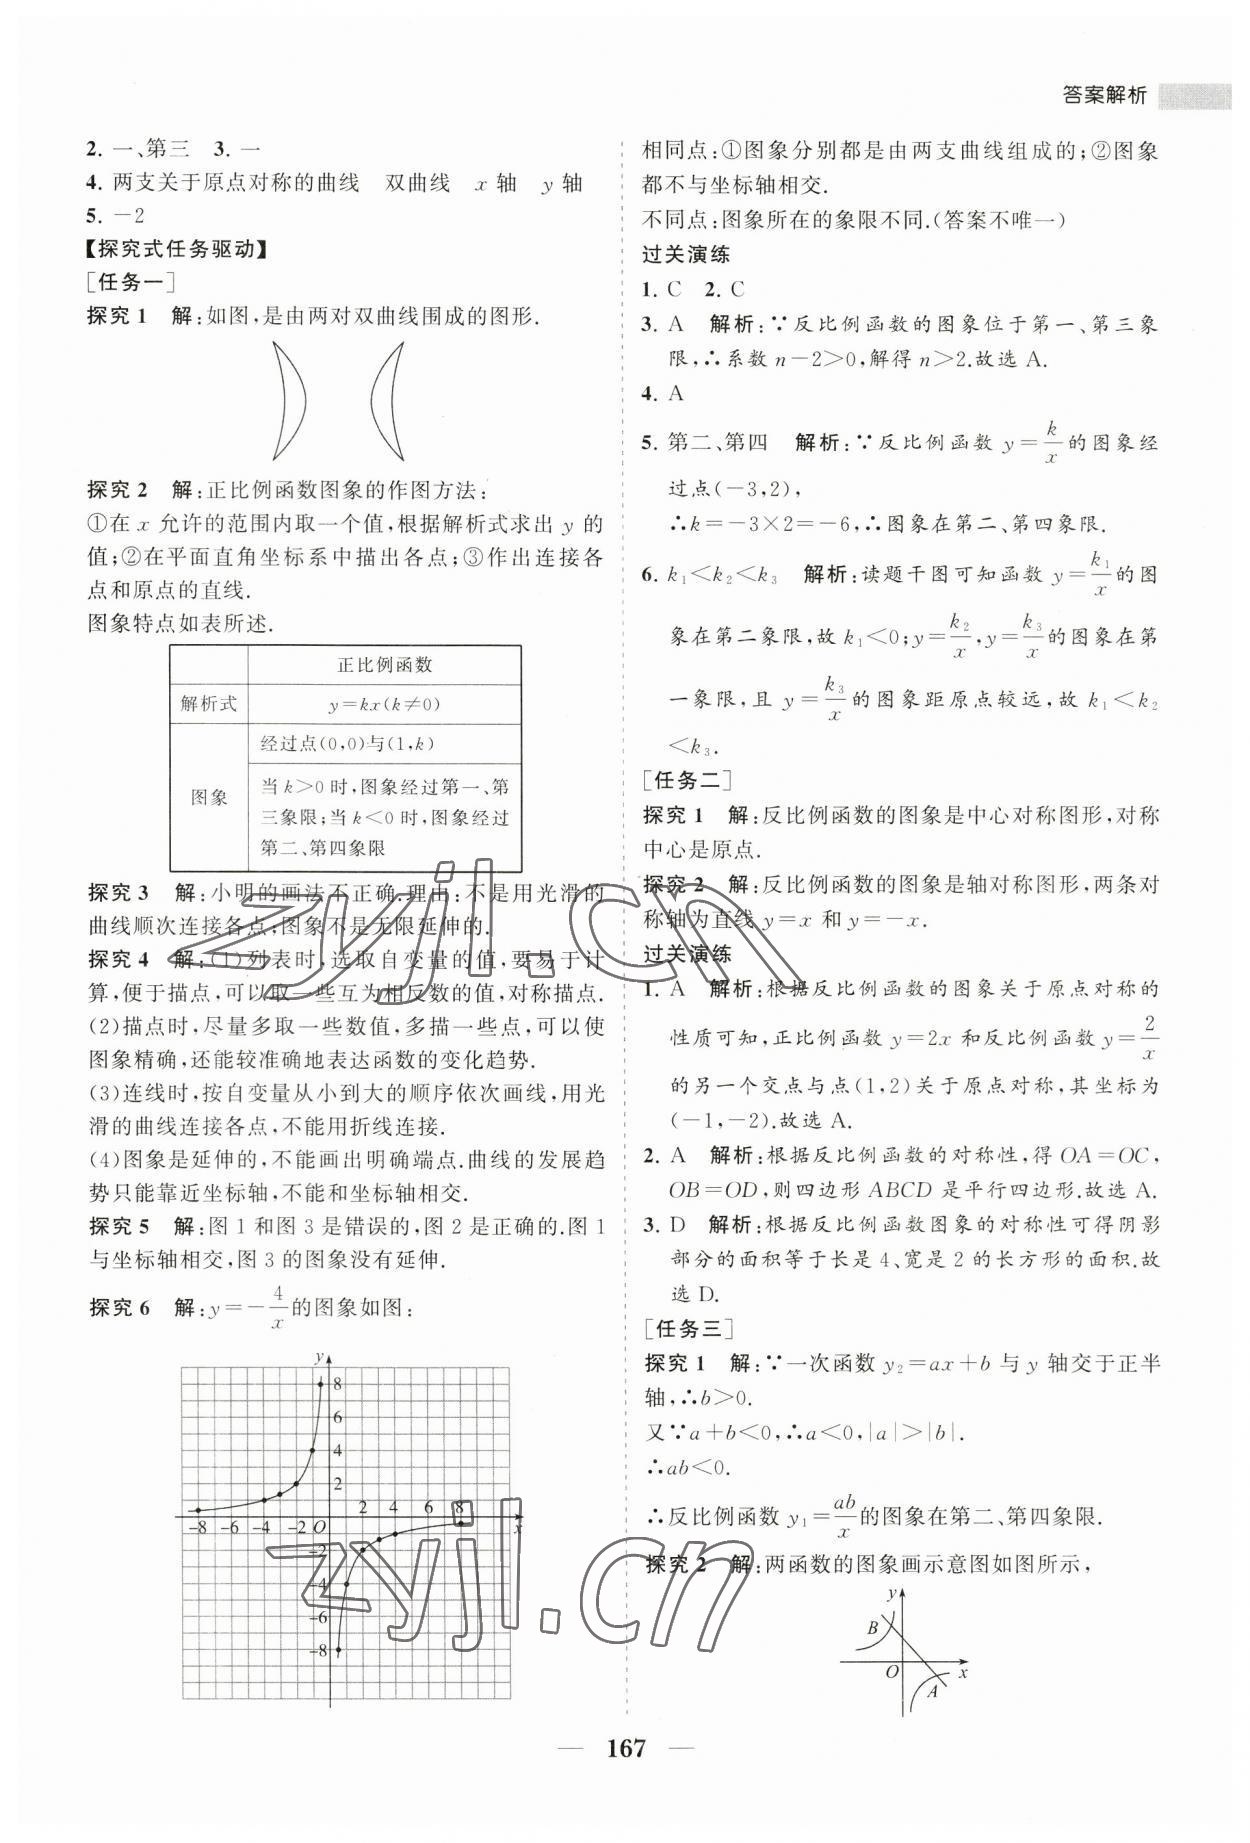 答案解析
2. 一、第三　3. 一
4. 两支关于原点对称的曲线　双曲线　x 轴　y 轴
5. －2
【探究式任务驱动】
[任务一]
探究 1　解:如图,是由两对双曲线围成的图形.
探究 2　解:正比例函数图象的作图方法:
①在 x 允许的范围内取一个值,根据解析式求出 y 的
值;②在平面直角坐标系中描出各点;③作出连接各
点和原点的直线.
图象特点如表所述.
正比例函数
解析式　y=kx(k≠0)
图象　经过点(0,0)与(1,k)
当 k>0 时,图象经过第一、第
三象限;当 k<0 时,图象经过
第二、第四象限
探究 3　解:小明的画法不正确.理由:不是用光滑的
曲线顺次连接各点;图象不是无限延伸的.
探究 4　解:(1)列表时,选取自变量的值,要易于计
算,便于描点,可以取一些互为相反数的值,对称描点.
(2)描点时,尽量多取一些数值,多描一些点,可以使
图象精确,还能较准确地表达函数的变化趋势.
(3)连线时,按自变量从小到大的顺序依次画线,用光
滑的曲线连接各点,不能用折线连接.
(4)图象是延伸的,不能画出明确端点.曲线的发展趋
势只能靠近坐标轴,不能和坐标轴相交.
探究 5　解:图 1 和图 3 是错误的,图 2 是正确的.图 1
与坐标轴相交,图 3 的图象没有延伸.
探究 6　解:y=－4/x的图象如图:
y
8
6
4
2
2 4 6 8
−8 −6 −4 −2 O x
−2
−4
−6
−8
相同点:①图象分别都是由两支曲线组成的;②图象
都不与坐标轴相交.
不同点:图象所在的象限不同.(答案不唯一)
过关演练
1. C　2. C
3. A　解析:∵反比例函数的图象位于第一、第三象
限,∴系数 n－2>0,解得 n>2.故选 A.
4. A
5. 第二、第四　解析:∵反比例函数 y=k/x的图象经
过点(－3,2),
∴k=－3×2=－6,∴图象在第二、第四象限.
6. k₁<k₂<k₃　解析:读题干图可知函数 y=k₁/x的图
象在第二象限,故 k₁<0;y=k₂/x,y=k₃/x的图象在第
一象限,且 y=k₃/x的图象距原点较远,故 k₁<k₂
<k₃.
[任务二]
探究 1　解:反比例函数的图象是中心对称图形,对称
中心是原点.
探究 2　解:反比例函数的图象是轴对称图形,两条对
称轴为直线 y=x 和 y=－x.
过关演练
1. A　解析:根据反比例函数的图象关于原点对称的
性质可知,正比例函数 y=2x 和反比例函数 y=2/x
的另一个交点与点(1,2)关于原点对称,其坐标为
(－1,－2).故选 A.
2. A　解析:根据反比例函数的对称性,得 OA=OC,
OB=OD,则四边形 ABCD 是平行四边形.故选 A.
3. D　解析:根据反比例函数图象的对称性可得阴影
部分的面积等于长是 4、宽是 2 的长方形的面积.故
选 D.
[任务三]
探究 1　解:∵一次函数 y₂=ax+b 与 y 轴交于正半
轴,∴b>0.
又∵a+b<0,∴a<0,|a|>|b|.
∴ab<0.
∴反比例函数 y₁=ab/x的图象在第二、第四象限.
探究 2　解:两函数的图象画示意图如图所示,
y
B
O x
A
167
zyjl.cn
zyjl.cn